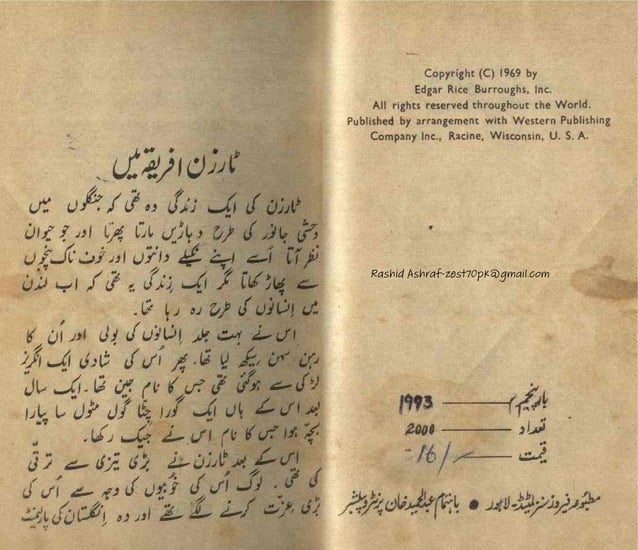 Copyright (C) 1969 by
Edgar Rice Burroughs, Inc.
All rights reserved throughout the World.
Published by arrangement with Western Publishing
Company Inc., Racine, Wisconsin, U. S. A.
Rashid Ashraf-zest70pk@gmail.com
بار پنجم 1993
تعداد 2000
قیمت 16/-
مطبوعہ فیروز سنز لمیٹڈ۔ لاہور ● باہتمام عبدالحمید خان پرنٹر و پبلشر
ٹارزن افریقہ میں
ٹارزن کی ایک زندگی وہ تھی کہ جنگلوں میں
وحشی جانور کی طرح دہاڑیں مارتا پھرتا اور جو حیوان
نظر آتا اُسے اپنے نکیلے دانتوں اور خوف ناک پنجوں
سے پھاڑ کھاتا مگر ایک زندگی یہ تھی کہ اب لندن
میں اِنسانوں کی طرح رہ رہا تھا۔
اس نے بہت جلد اِنسانوں کی بولی اور اُن کا
رہن سہن سیکھ لیا تھا۔ پھر اُس کی شادی ایک انگریز
لڑکی سے ہوگئی تھی جس کا نام جین تھا۔ ایک سال
بعد اس کے ہاں ایک گورا چٹا گول مٹول سا پیارا
بچّہ ہوا جس کا نام اس نے جیک رکھا۔
اس کے بعد ٹارزن نے بڑی تیزی سے ترقّی
کی تھی۔ لوگ اُس کی خُوبیوں کی وجہ سے اُس کی
بڑی عِزّت کرنے لگے تھے اور وہ اِنگلستان کی پارلیمنٹ